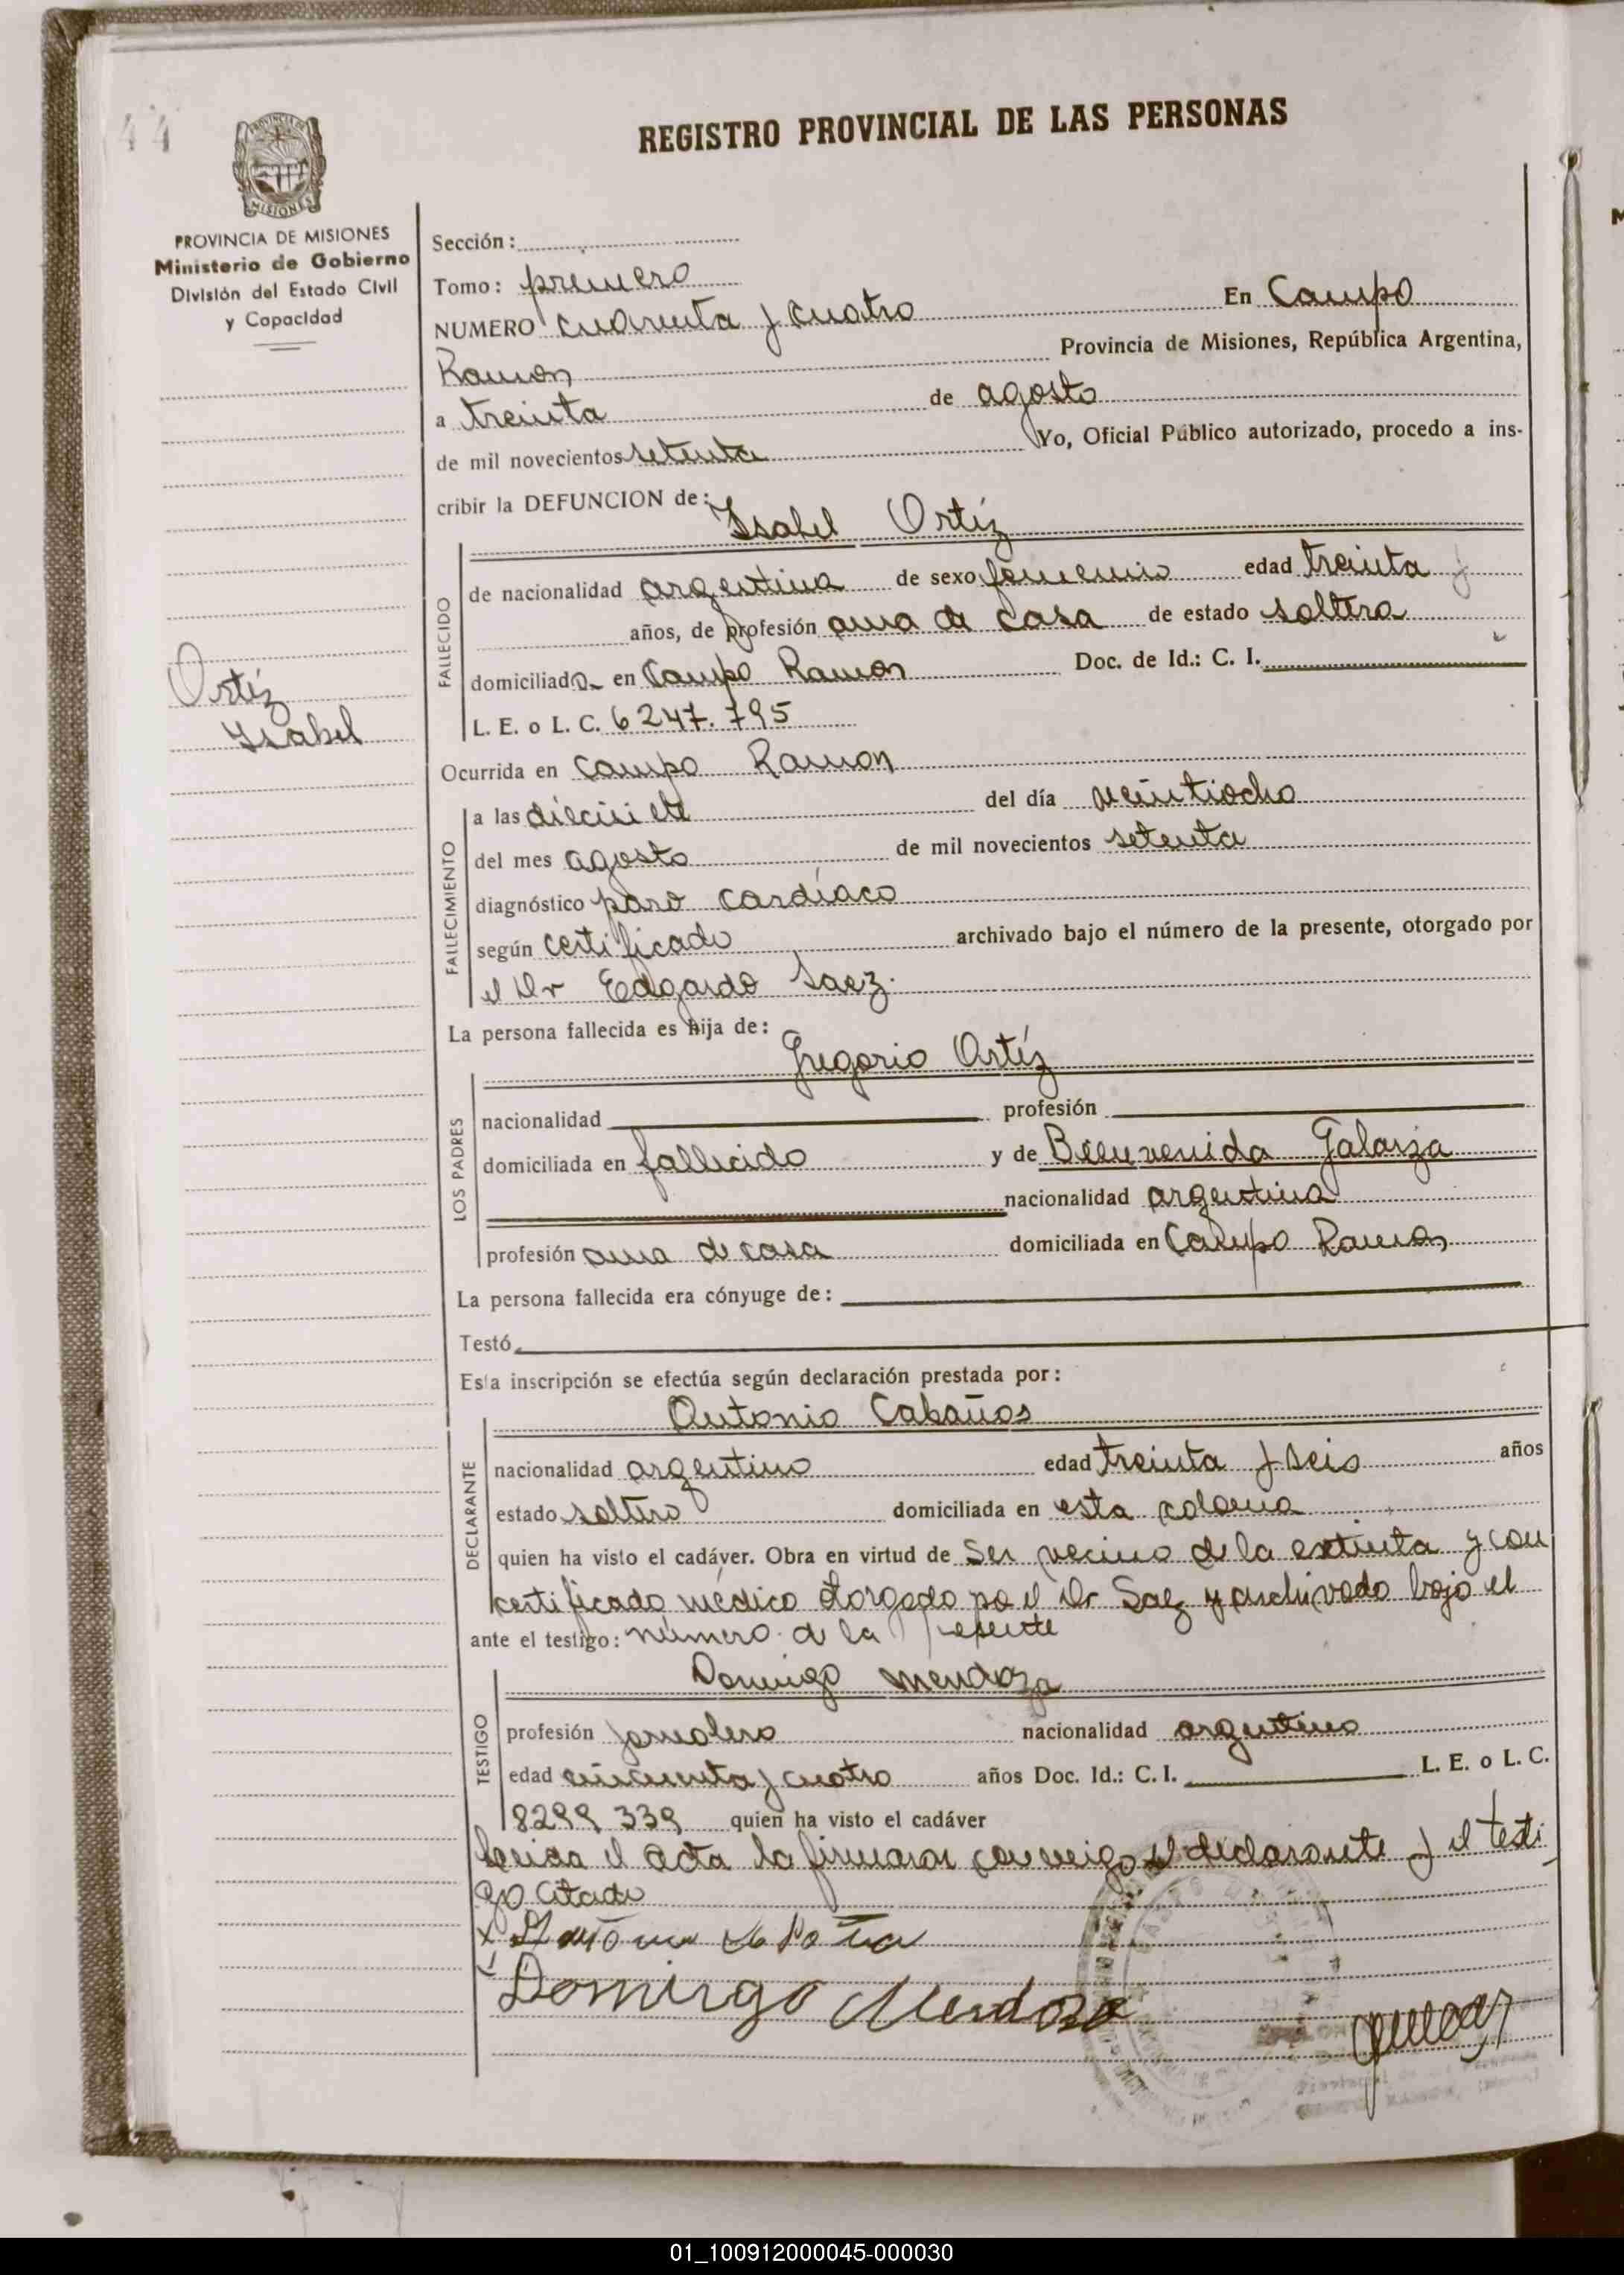 44
REGISTRO PROVINCIAL DE LAS PERSONAS
PROVINCIA DE MISIONES
Ministerio de Gobierno
División del Estado Civil
y Capacidad
MISIONES
Sección:
Tomo: primero
NUMERO cuarenta y cuatro En Campo
Ramon Provincia de Misiones, República Argentina,
a treinta de agosto
de mil novecientos setenta Yo, Oficial Público autorizado, procedo a ins-
cribir la DEFUNCION de:
Isabel Ortíz
FALLECIDO
de nacionalidad argentina de sexo femenino edad treinta y
años, de profesión ama de casa de estado soltera
domiciliada en Campo Ramon Doc. de Id.: C. I.
Ortíz
Isabel
L. E. o L. C. 6247.795
Ocurrida en Campo Ramon
FALLECIMIENTO
a las diecisiete del día veintiocho
del mes agosto de mil novecientos setenta
diagnóstico paro cardíaco
según certificado archivado bajo el número de la presente, otorgado por
el Dr Edgardo Saez.
La persona fallecida es hija de:
Gregorio Ortíz
LOS PADRES
nacionalidad profesión
domiciliada en fallecido y de Bienvenida Galarza
nacionalidad argentina
profesión ama de casa domiciliada en Campo Ramon
La persona fallecida era cónyuge de:
Testó
Esta inscripción se efectúa según declaración prestada por:
Antonio Cabañas
DECLARANTE
nacionalidad argentino edad treinta y seis años
estado soltero domiciliada en esta colonia
quien ha visto el cadáver. Obra en virtud de Ser vecino de la extinta y con
certificado médico otorgado po el Dr Saez y archivado bajo el
ante el testigo: número de la presente
Domingo Mendoza
TESTIGO
profesión jornalero nacionalidad argentino
edad cincuenta y cuatro años Doc. Id.: C. I. L. E. o L. C.
8299 339 quien ha visto el cadáver
Leida el acta la firmaron conmigo el declarante y el testi
go citado
Domingo Mendoza
01_100912000045-000030